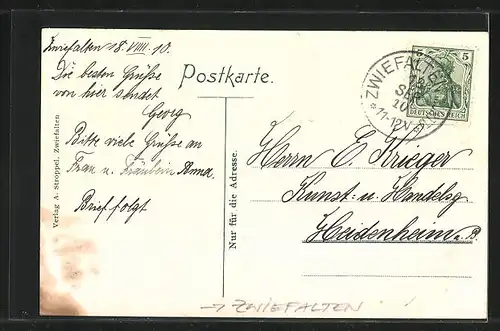 Zwiefalten 18.VIIII.10.
Die besten Grüsse
von hier sendet
Georg
Bitte viele Grüsse an
Frau u. Fräulein Anna.
Brief folgt
Postkarte.
Verlag A. Stroppel, Zwiefalten
Nur für die Adresse.
5 5
DEUTSCHES REICH
* ZWIEFALTEN
SEP
10
11-12V
Herrn E. Krieger
Kunst- u. Handelsg.
Heidenheim a. B.
→ ZWIEFALTEN